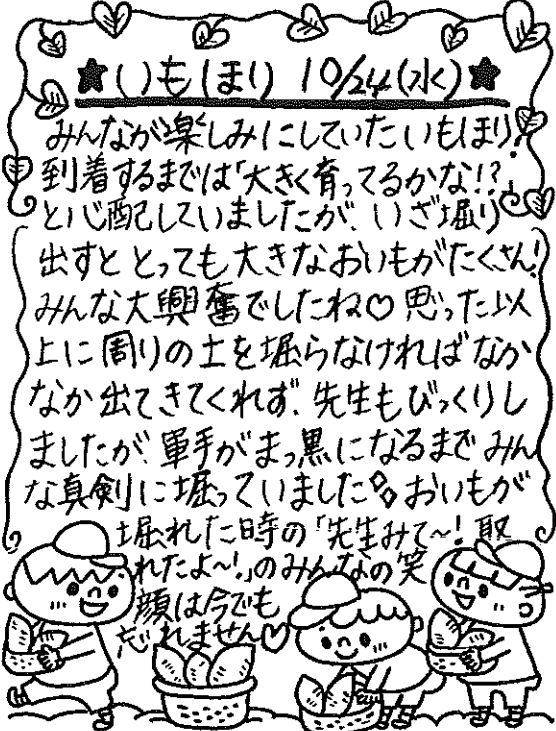 ★いもほり 10/24(水)★
みんなが楽しみにしていたいもほり!
到着するまでは「大きく育ってるかな!?」
と心配していましたが、いざ堀り
出すと とっても大きなおいもがたくさん!
みんな大興奮でしたね♡ 思った以
上に周りの土を堀らなければなか
なか出てきてくれず、先生もびっくりし
ましたが、軍手がまっ黒になるまで みん
な真剣に堀っていました おいもが
堀れた時の「先生みて〜!取
れたよ〜!」のみんなの笑
顔は今でも
忘れません♡